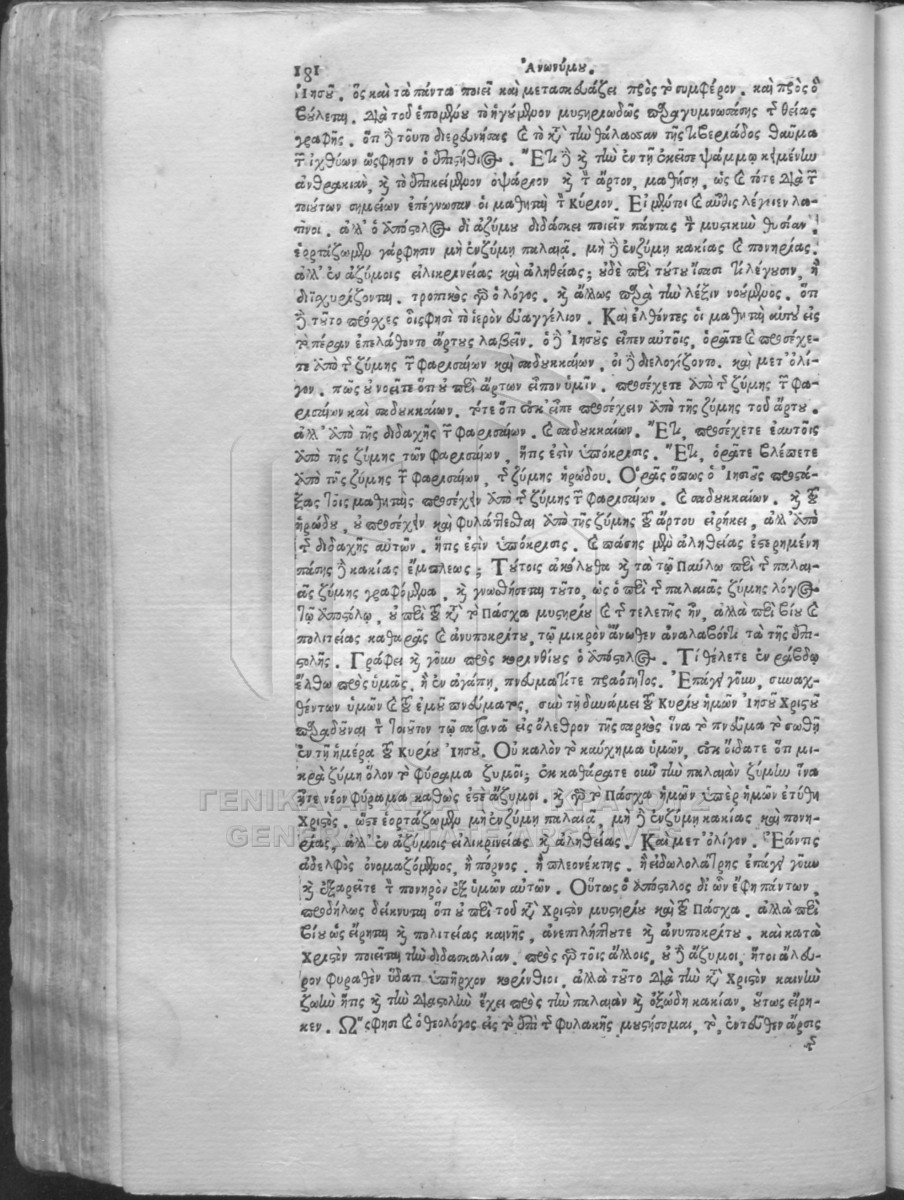 181 Ἀνωνύμου.
Ἰησοῦ. ὃς καὶ τὰ πάντα ποιεῖ καὶ μετασκευάζει πρὸς τὸ συμφέρον. καὶ πρὸς ὃ
βούλεται. διὰ τοῦ ἑπομένου τὸ ἡγούμενον μυστηριωδῶς παραγυμνωσάσης τῆς θείας
γραφῆς. ὅτι δὲ τοῦτο διερευνήσας καὶ τὸ κατὰ τὴν θάλασσαν τῆς Τιβεριάδος θαῦμα
τῶν ἰχθύων ὥς φησιν ὁ ἐπιστήθιος. Ἔτι δὲ καὶ τὴν ἐν τῇ ἐκεῖσε ψάμμῳ κειμένην
ἀνθρακιὰν, καὶ τὸ ἐπικείμενον ὀψάριον καὶ τὸν ἄρτον, μαθήσῃ, ὡς καὶ τότε διὰ τῶν
τοιούτων σημείων ἐπέγνωσαν οἱ μαθηταὶ τὸν Κύριον. Εἰ μέντοι καὶ αὖθις λέγοιεν λα-
τῖνοι. ἀλλ' ὁ ἀπόστολος δι' ἀζύμου διδάσκει ποιεῖν πάντας τὴν μυστικὴν θυσίαν.
ἑορτάζωμεν γάρ φησιν μὴ ἐν ζύμῃ παλαιᾷ. μὴ δὲ ἐν ζύμῃ κακίας καὶ πονηρίας.
ἀλλ' ἐν ἀζύμοις εἰλικρινείας καὶ ἀληθείας; οὐδὲ περὶ τούτου ἴσασι τί λέγουσιν, ἢ
διϊσχυρίζονται. τροπικὸς γὰρ ὁ λόγος. καὶ ἄλλως παρὰ τὴν λέξιν νοούμενος. ὅτι
δὲ τοῦτο πρόσχες οἷς φησὶ τὸ ἱερὸν εὐαγγέλιον. Καὶ ἐλθόντες οἱ μαθηταὶ αὐτοῦ εἰς
τὸ πέραν ἐπελάθοντο ἄρτους λαβεῖν. ὁ δὲ Ἰησοῦς εἶπεν αὐτοῖς, ὁρᾶτε καὶ προσέχε-
τε ἀπὸ τῆς ζύμης τῶν Φαρισαίων καὶ σαδουκκαίων, οἱ δὲ διελογίζοντο. καὶ μετ' ὀλί-
γον. πῶς οὐ νοεῖτε ὅτι οὐ περὶ ἄρτων εἶπον ὑμῖν. προσέχετε ἀπὸ τῆς ζύμης τῶν Φα-
ρισαίων καὶ σαδουκκαίων. τότε ὅτι οὐκ εἶπε προσέχειν ἀπὸ τῆς ζύμης τοῦ ἄρτου.
ἀλλ' ἀπὸ τῆς διδαχῆς τῶν Φαρισαίων. καὶ σαδουκκαίων. Ἔτι, προσέχετε ἑαυτοῖς
ἀπὸ τῆς ζύμης τῶν Φαρισαίων, ἥτις ἐστὶν ὑπόκρισις. Ἔτι, ὁρᾶτε βλέπετε
ἀπὸ τῆς ζύμης τῶν Φαρισαίων, τῆς ζύμης ἡρώδου. Ὁρᾷς ὅπως ὁ Ἰησοῦς προστά-
ξας τοῖς μαθηταῖς προσέχειν ἀπὸ τῆς ζύμης τῶν Φαρισαίων. καὶ σαδουκκαίων. καὶ τοῦ
ἡρώδου, οὐ προσέχειν καὶ φυλάττεσθαι ἀπὸ τῆς ζύμης τοῦ ἄρτου εἰρήκει, ἀλλ' ἀπὸ
τῆς διδαχῆς αὐτῶν. ἥτις ἐστὶν ὑπόκρισις. καὶ πάσης μὲν ἀληθείας ἐστερημένη
πάσης δὲ κακίας ἔμπλεως; Τούτοις ἀκόλουθα καὶ τὰ τῷ Παύλῳ περὶ τῆς παλαι-
ᾶς ζύμης γραφόμενα, καὶ γνωσθήσεται τοῦτο, ὡς ὁ περὶ τῆς παλαιᾶς ζύμης λόγος
τῷ Ἀποστόλῳ, οὐ περὶ τοῦ κατὰ τὸ Πάσχα μυστηρίου καὶ τῆς τελετῆς ἦν, ἀλλὰ περὶ βίου καὶ
πολιτείας καθαρᾶς καὶ ἀνυποκρίτου, τῷ μικρὸν ἄνωθεν ἀναλαβόντι τὰ τῆς ἐπι-
στολῆς. Γράφει καὶ γοῦν πρὸς κορινθίους ὁ ἀπόστολος. Τί θέλετε ἐν ῥάβδῳ
ἔλθω πρὸς ὑμᾶς, ἢ ἐν ἀγάπῃ, πνεύματί τε πραότητος. Ἐπάγει γοῦν, συναχ-
θέντων ὑμῶν καὶ τοῦ ἐμοῦ πνεύματος, σὺν τῇ δυνάμει τοῦ Κυρίου ἡμῶν Ἰησοῦ Χριστοῦ
παραδοῦναι τὸν τοιοῦτον τῷ σατανᾷ εἰς ὄλεθρον τῆς σαρκὸς ἵνα τὸ πνεῦμα τὸ σωθῇ
ἐν τῇ ἡμέρᾳ τοῦ Κυρίου Ἰησοῦ. Οὐ καλὸν τὸ καύχημα ὑμῶν, οὐκ οἴδατε ὅτι μι-
κρὰ ζύμη ὅλον τὸ φύραμα ζυμοῖ; ἐκκαθάρατε οὖν τὴν παλαιὰν ζύμην ἵνα
ἦτε νέον φύραμα καθὼς ἐστὲ ἄζυμοι. καὶ γὰρ τὸ Πάσχα ἡμῶν ὑπὲρ ἡμῶν ἐτύθη
Χριστός. ὥστε ἑορτάζωμεν μὴ ἐν ζύμῃ παλαιᾷ, μὴ δὲ ἐν ζύμῃ κακίας καὶ πονη-
ρίας, ἀλλ' ἐν ἀζύμοις εἰλικρινείας καὶ ἀληθείας. Καὶ μετ' ὀλίγον. Ἐάν τις
ἀδελφὸς ὀνομαζόμενος, ἢ πόρνος. ἢ πλεονέκτης. ἢ εἰδωλολάτρης ἐπάγει γοῦν
καὶ ἐξαρεῖτε τὸν πονηρὸν ἐξ ὑμῶν αὐτῶν. Οὕτως ὁ Ἀπόστολος δι' ὧν ἔφη πάντων,
προδήλως δείκνυται ὅτι οὐ περὶ τοῦ κατὰ Χριστὸν μυστηρίου καὶ τοῦ Πάσχα. ἀλλὰ περὶ
βίου ὡς εἴρηται καὶ πολιτείας καινῆς, ἀνεπιλήπτου καὶ ἀνυποκρίτου. καὶ κατὰ
Χριστὸν ποιεῖται τὴν διδασκαλίαν. πρὸς γὰρ τοῖς ἄλλοις, οὐ δὲ ἄζυμοι, ἤτοι ἄλευ-
ρον φυραθὲν ὕδατι ὑπῆρχον κορίνθιοι, ἀλλὰ τοῦτο διὰ τὴν κατὰ Χριστὸν καινὴν
ζωὴν ἥτις καὶ τὴν διαστολὴν ἔχει πρὸς τὴν παλαιὰν καὶ ὀξώδη κακίαν, οὕτως εἴρη-
κεν. Ὥς φησι καὶ ὁ θεολόγος εἰς τὸ ἐπὶ τῆς φυλακῆς μου στήσομαι, τὸ, ἐντεῦθεν ἄρσις
ΓΕΝΙΚΑ ΑΡΧΕΙΑ ΤΟΥ ΚΡΑΤΟΥΣ
GENERAL STATE ARCHIVES